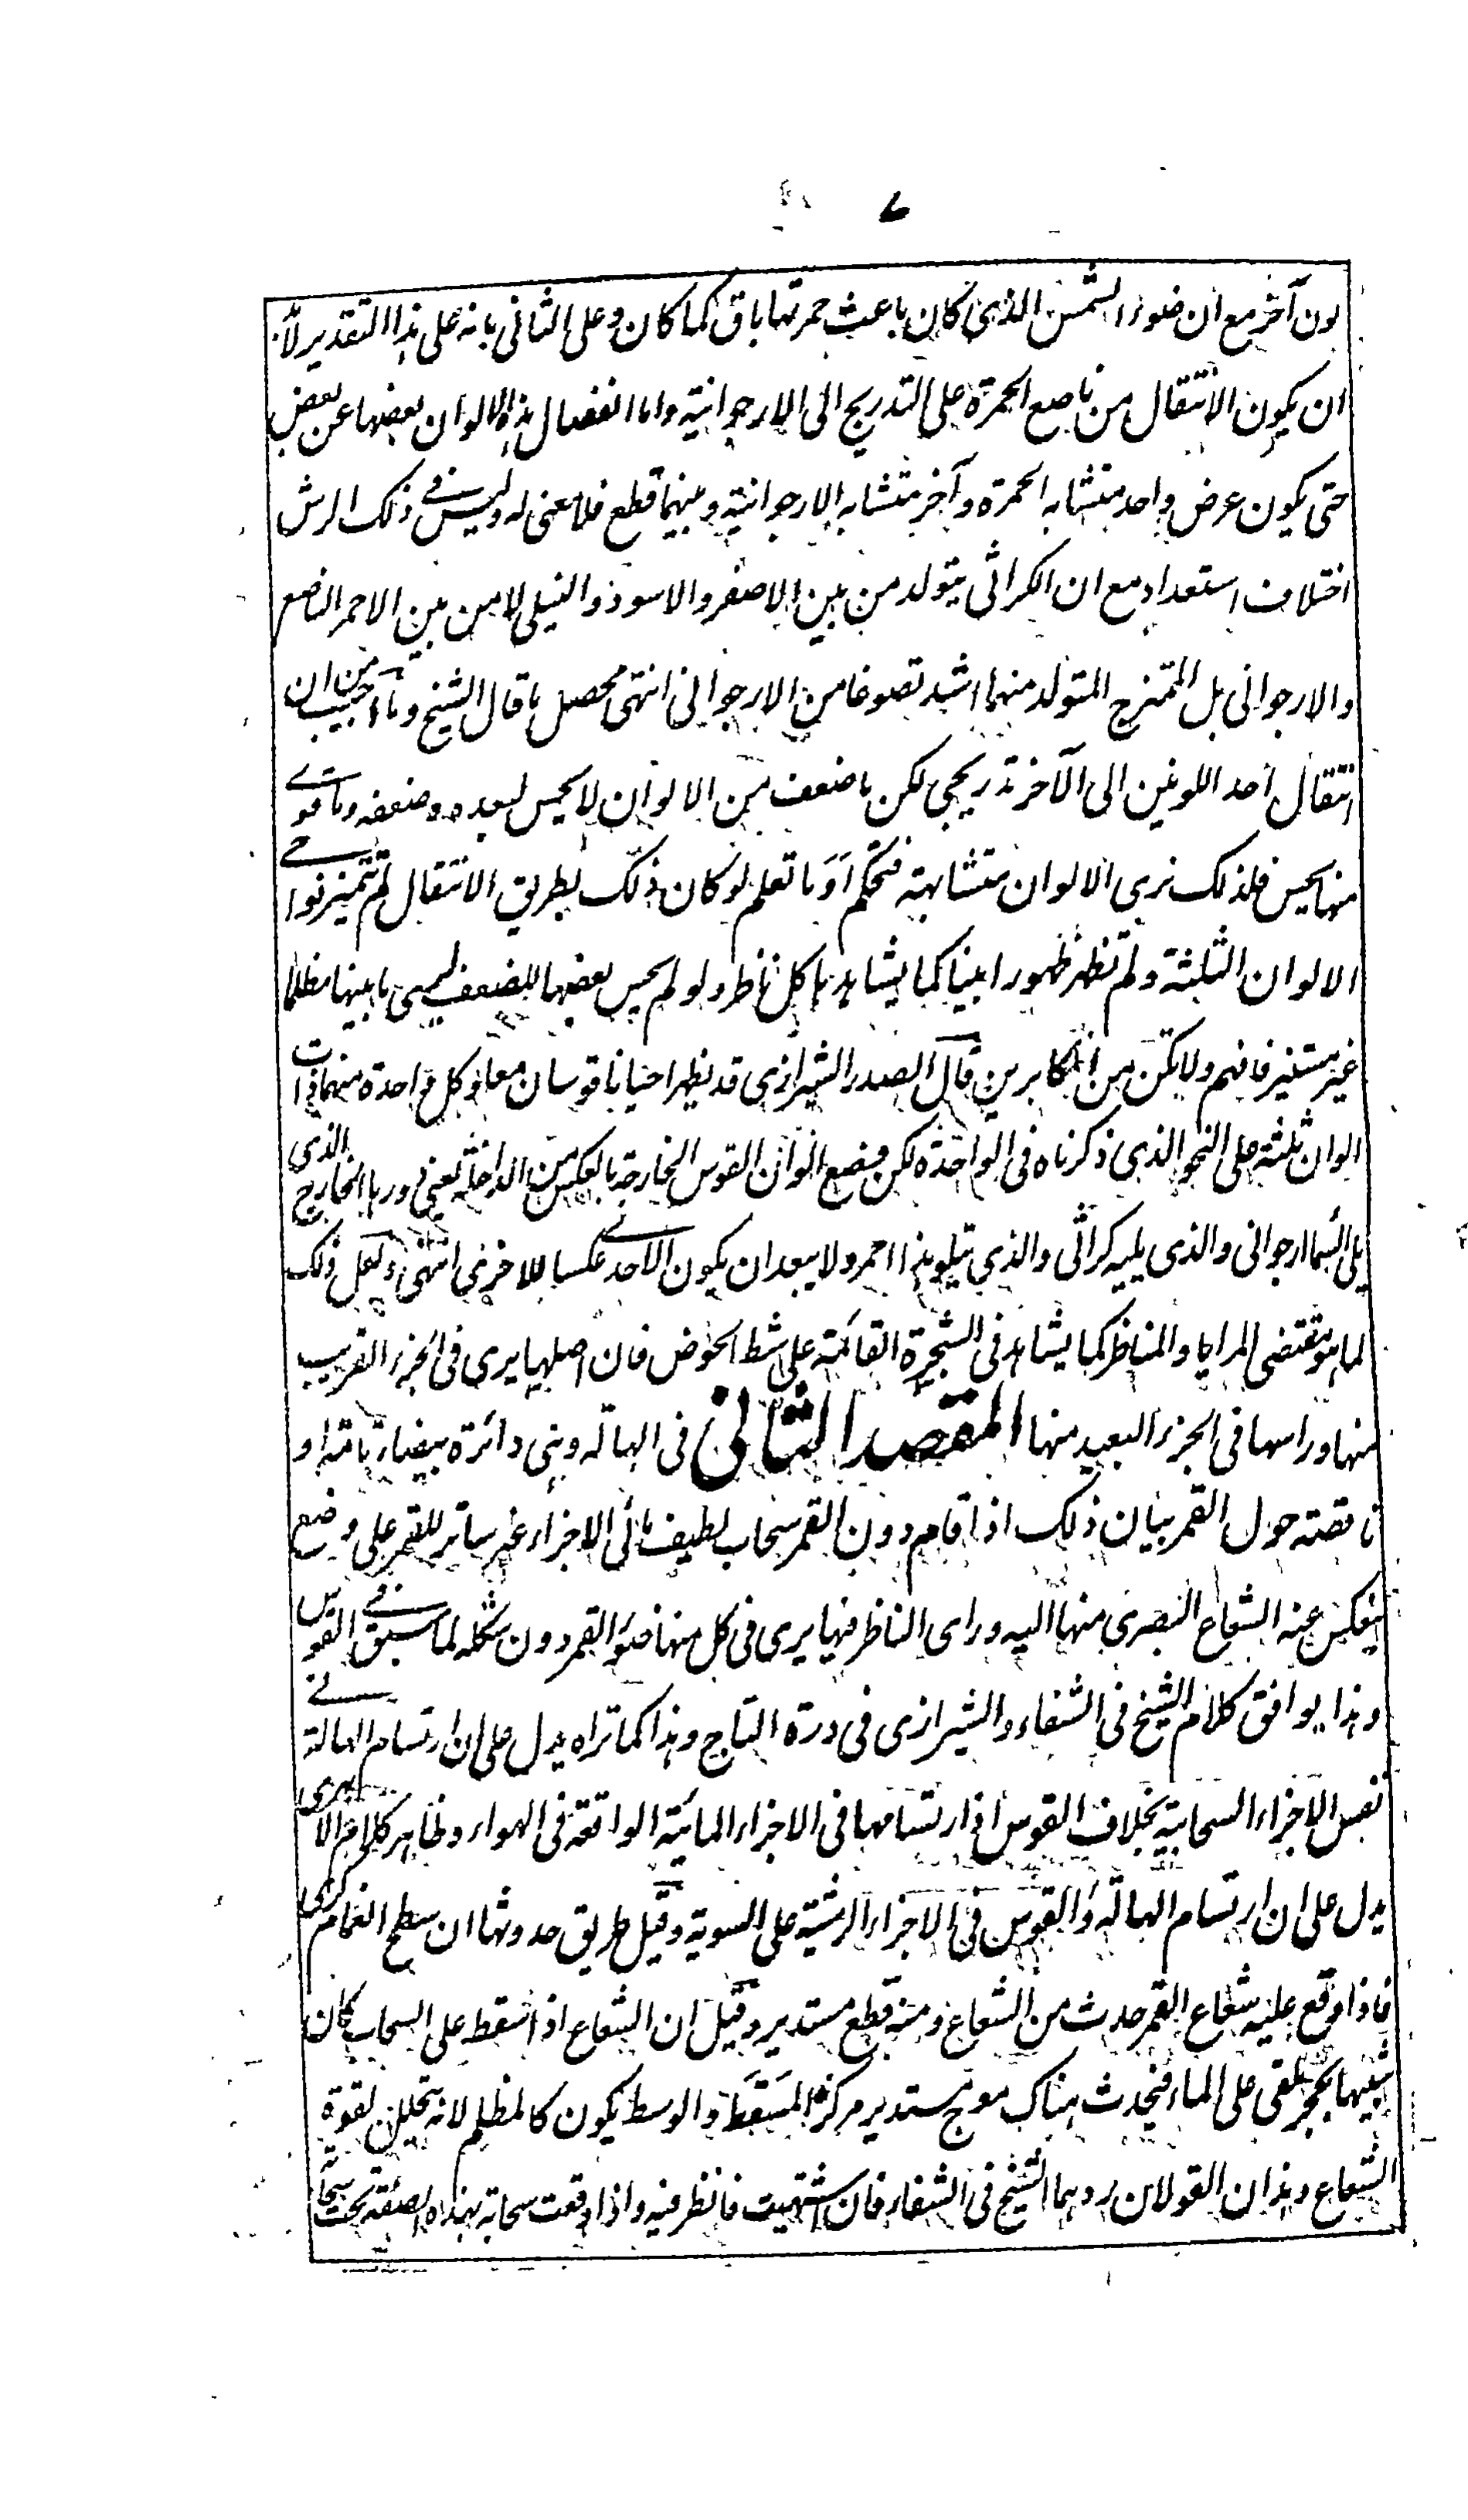 ٧
لون آخر مع ان ضوء الشمس الذى كان باعث حمرتها باق كما كان وعلى الثانى بانه على هذا التقدير لابد
ان يكون الانتقال من ناصع الحمرة على التدريج الى الارجوانية واما انفصال هذه الالوان بعضها عن بعض
حتى يكون عرض واحد متشابه الحمرة وآخر متشابه الارجوانية وبينهما قطع فلا معنى له وليس فى ذلك الرش
اختلاف استعداد مع ان الكراثى يتولد من بين الاصفر والاسود والنيلى لا من بين الاحمر الناصع
والارجوانى بل الممتزج المتولد منهما اشد نصوعا من الارجوانى انتهى محصل ما قال الشيخ وما اجيب من ان
انتقال احد اللونين الى الآخر تدريجى لكن ما ضعف من الالوان لا يحس لبعده وضعفه وما قوى
منها يحس فلذلك نرى الالوان متشابهة فتحكم او ما تعلم لو كان ذلك بطريق الانتقال لم تتميز نواحى
الالوان الثلثة ولم تظهر ظهورا بينا كما يشاهدها كل ناظر ولو لم يحس بعضها للضعف لبقى ما بينها مظلما
غير مستنير فافهم ولا تكن من المكابرين قال الصدر الشيرازى قد يظهر احيانا قوسان معا وكل واحدة منهما ذات
الوان ثلثة على النحو الذى ذكرناه فى الواحدة لكن وضع الوان القوس الخارجة بالعكس من الداخلة يعنى دورها الخارج الذى
يلى السماء ارجوانى والذى يليه كراثى والذى يتلو هذا احمر ولا يبعد ان يكون الاحدى عكسا للاخرى انتهى ولعل ذلك
لما هو مقتضى المرايا والمناظر كما يشاهد فى الشجرة القائمة على شط الحوض فان اصلها يرى فى الجزء القريب
منها وراسها فى الجزء البعيد منها المقصد الثانى فى الهالة وهى دائرة بيضاء تامة او
ناقصة حول القمر بيان ذلك اذا قام دون القمر سحاب لطيف مائى الاجزاء غير ساتر للقمر على وضع
ينعكس عنه الشعاع البصرى منها اليه وراى الناظر فيها يرى فى كل منها ضوء القمر دون شكله لما سبق فى القوس
وهذا يوافق كلام الشيخ فى الشفاء والشيرازى فى درة التاج وهذا كما تراه يدل على ان ارتسام الهالة فى
نفس الاجزاء السحابية بخلاف القوس اذ ارتسامها فى الاجزاء المائية الواقعة فى الهواء وظاهر كلام الابهرى
يدل على ان ارتسام الهالة والقوس فى الاجزاء الرشية على السوية وقيل طريق حدوثها ان سطح الغمام كرى
فاذا وقع عليه شعاع القمر حدث من الشعاع ومنه قطع مستدير وقيل ان الشعاع اذا سقط على السحاب كان
شبيها بحجر يلقى على الماء فيحدث هناك موج مستدير مركزه المسقط والوسط يكون كالمظلم لانه يتحلل بقوة
الشعاع وهذان القولان ردهما الشيخ فى الشفاء فان اشتهيت فانظر فيه واذا وقعت سحابة بهذه الصفة تحت سحابة